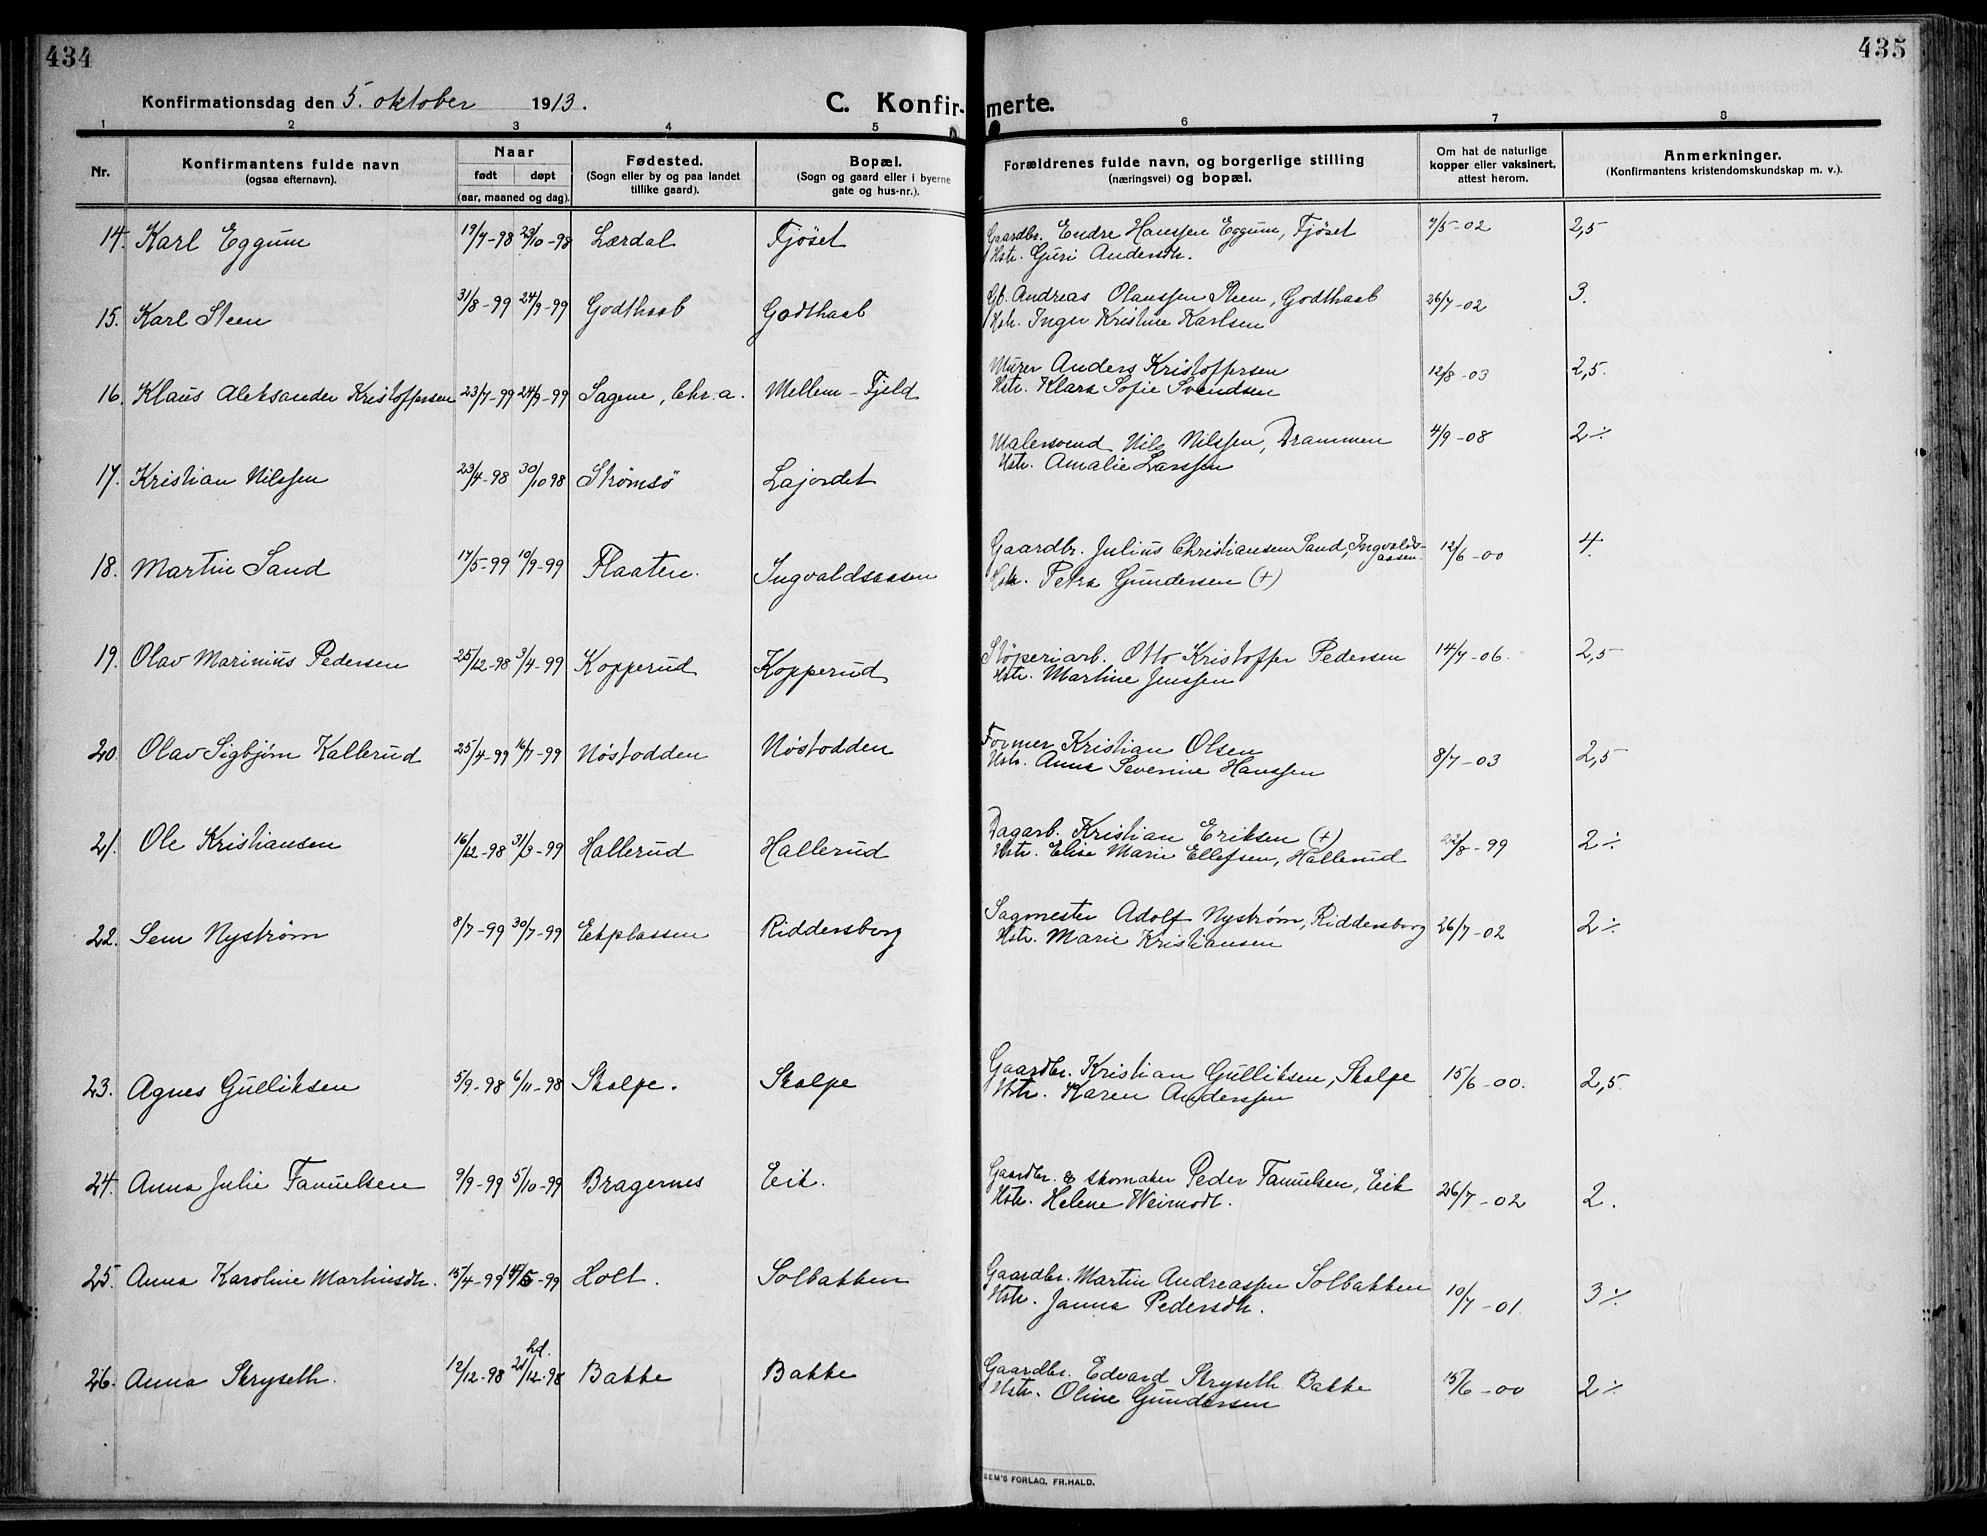 434
435
Konfirmationsdag den 5. oktober 1913.
C. Konfir-merte.
1 2 3 4 5 6 7 8
Nr.
Konfirmantens fulde navn
(ogsaa efternavn).
Naar
født døpt
(aar, maaned og dag).
Fødested.
(Sogn eller by og paa landet
tillike gaard).
Bopæl.
(Sogn og gaard eller i byerne
gate og hus-nr.).
Forældrenes fulde navn, og borgerlige stilling
(næringsvei) og bopæl.
Om hat de naturlige
kopper eller vaksinert,
attest herom.
Anmerkninger.
(Konfirmantens kristendomskundskap m. v.).
14. Karl Eggum 19/7-98 23/10-98 Lærdal Fjöset Gaardbr. Endre Hanssen Eggum, Fjöset 7/5-02 2,5
Hstr. Guri Andersdtr.
15. Karl Steen 31/8-99 24/9-99 Godthaab Godthaab Gb. Andreas Olaussen Steen, Godthaab 26/7-02 3.
Hstr. Inger Kristine Karlsen
16. Klaus Aleksander Kristoffersen 23/7-99 24/9-99 Sagene, Chr.a. Mellem-Fjeld Murer Anders Kristoffersen 12/8-03 2,5.
Hstr. Klara Sofie Svendsen
17. Kristian Nilssen 23/4-98 30/10 98 Strömsö Lajordet Malersvend Nils Nilssen, Drammen 4/9-08 2÷
Hstr. Amalie Larssen
18. Martin Sand 17/5-99 10/9-99 Flaaten. Ingvaldsaasen Gaardbr. Julius Christiansen Sand, Ingvalds-aasen. 12/6-00 4.
Hstr. Petra Gundersen (+)
19. Olav Marinius Pedersen 25/12-98 3/4-99 Kopperud Kopperud Stöperiarb. Otto Kristoffer Pedersen 14/7-06. 2,5
Hstr. Martine Jenssen
20. Olav Sigbjörn Kallerud 25/4-99 16/7-99 Nöstodden Nöstodden Former Kristian Olsen 8/7-03 2,5
Hstr. Anna Severine Hanssen
21. Ole Kristiansen 16/12-98 31/3-99 Hallerud Hallerud Dagarb. Kristian Eriksen (+) 23/8-99 2÷
Hstr. Elise Marie Ellefsen, Hallerud
22. Sem Nyström 8/7-99 30/7-99 Ekplassen Riddersborg Sagmester Adolf Nyström, Riddersborg 26/7-02 2÷
Hstr. Marie Kristiansen
23. Agnes Gulliksen 5/9-98 6/11-98 Skalpe. Skalpe Gaardbr. Kristian Gulliksen, Skalpe 15/6-00. 2,5.
Hstr. Karen Anderssen
24. Anna Julie Fanuelsen 9/9-99 5/10-99 Bragernes Eik. Gaardbr. & skomaker Peder Fanuelsen, Eik 26/7-02 2.
Hstr. Helene Weimodt.
25. Anna Karoline Martinsdtr. 15/4-99 14/5-99 Holt. Solbakken Gaardbr. Martin Andreassen Solbakken 10/7-01. 3÷
Hstr. Janna Pedersdtr.
26. Anna Stryseth. 12/12-98 hd. 21/12-98 Bakke Bakke Gaardbr. Edvard Stryseth Bakke 15/6-00 2÷
Hstr. Oline Gundersen
SEM'S FORLAG, FR. HALD.